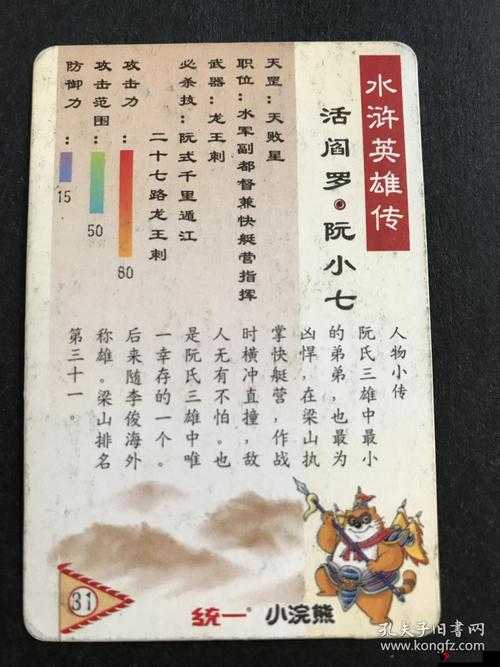 水浒英雄传
活阎罗·阮小七
天罡：天败星
职位：水军副都督兼快艇营指挥
武器：龙王刺
必杀技：阮式千里遁江
二十七路龙王刺
攻击力：
80
攻击范围：
50
防御力：
15
人物小传
阮氏三雄中最小
的弟弟，也最为
凶悍，在梁山执
掌快艇营，作战
时横冲直撞，敌
人无有不怕。也
是阮氏三雄中唯
一幸存的一个。
后来随李俊海外
称雄。梁山排名
第三十一。
31
统一 小浣熊
孔夫子旧书网
www.kongfz.com